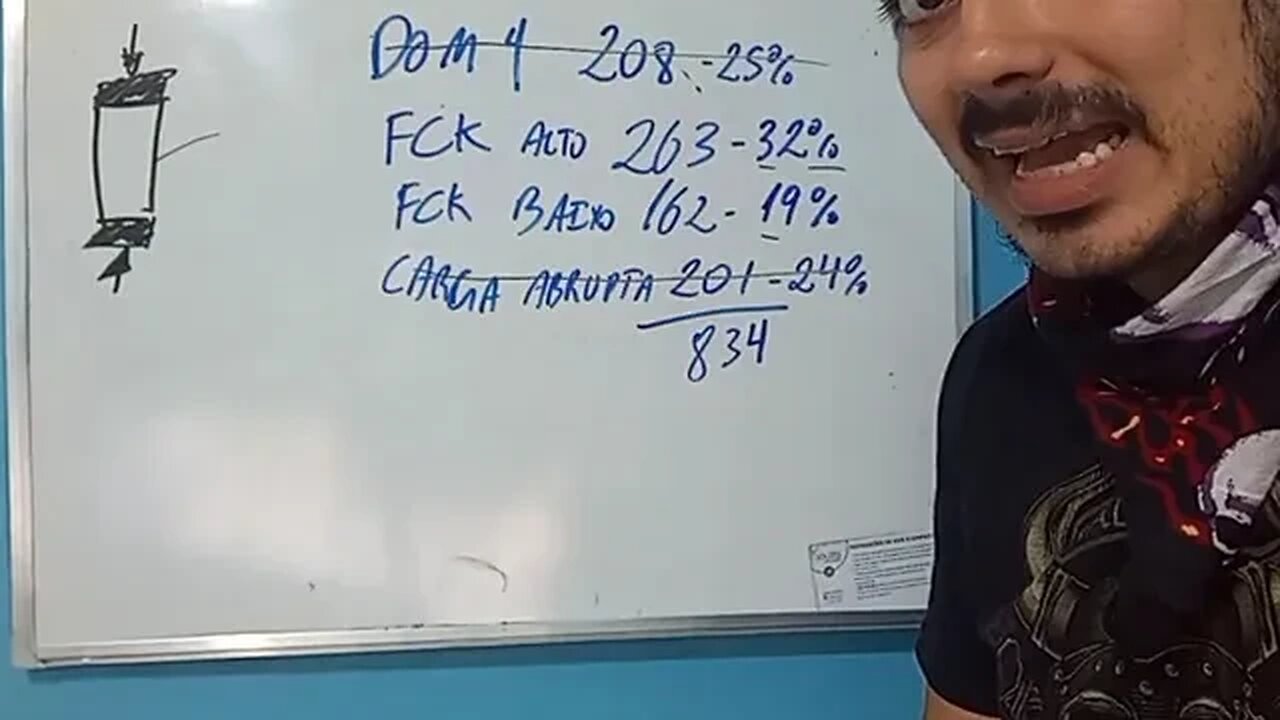 DOM 4 208 - 25%
FCK ALTO 263 - 32%
FCK BAIXO 162 - 19%
CARGA ABRUPTA 201 - 24%
834